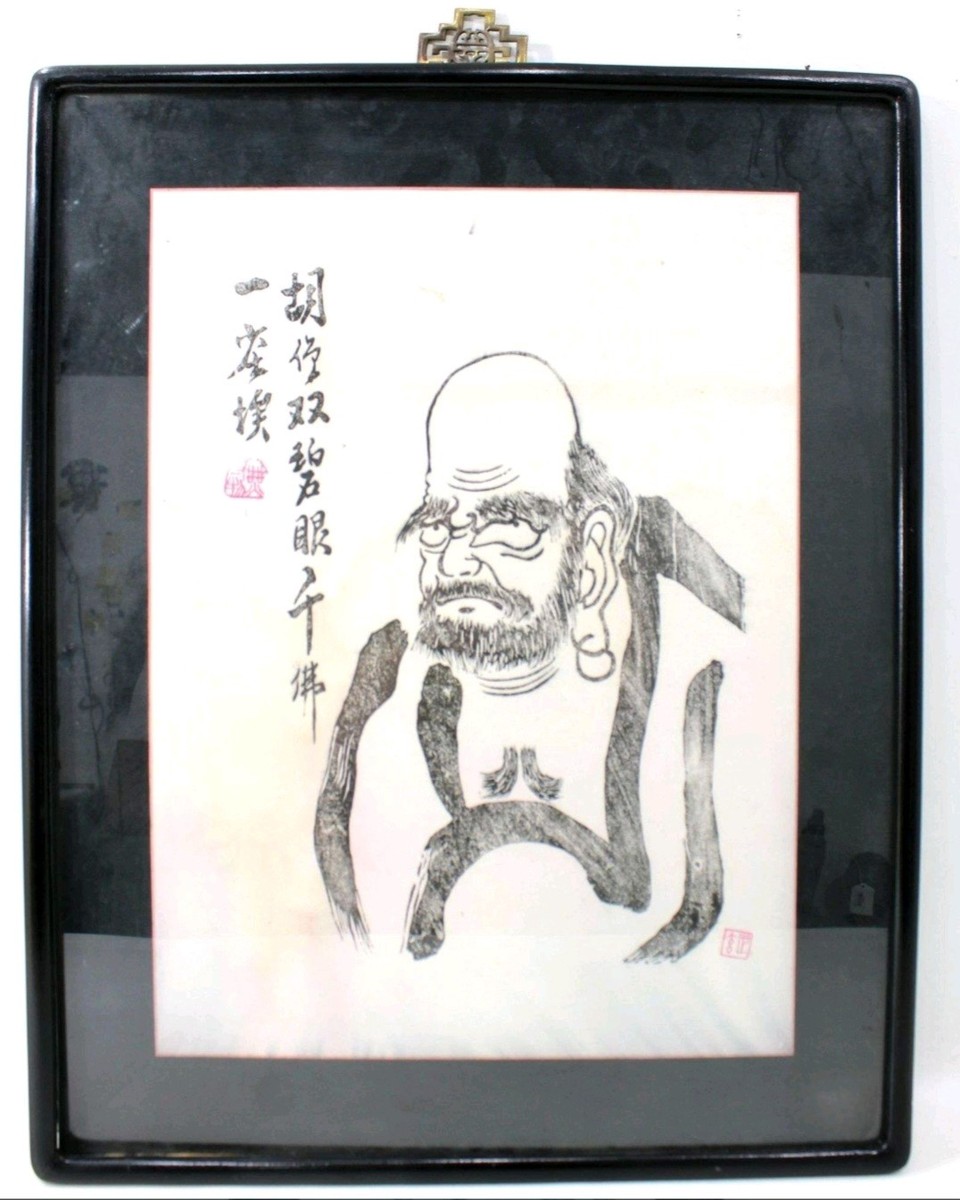 胡僧双碧眼千佛
一埃